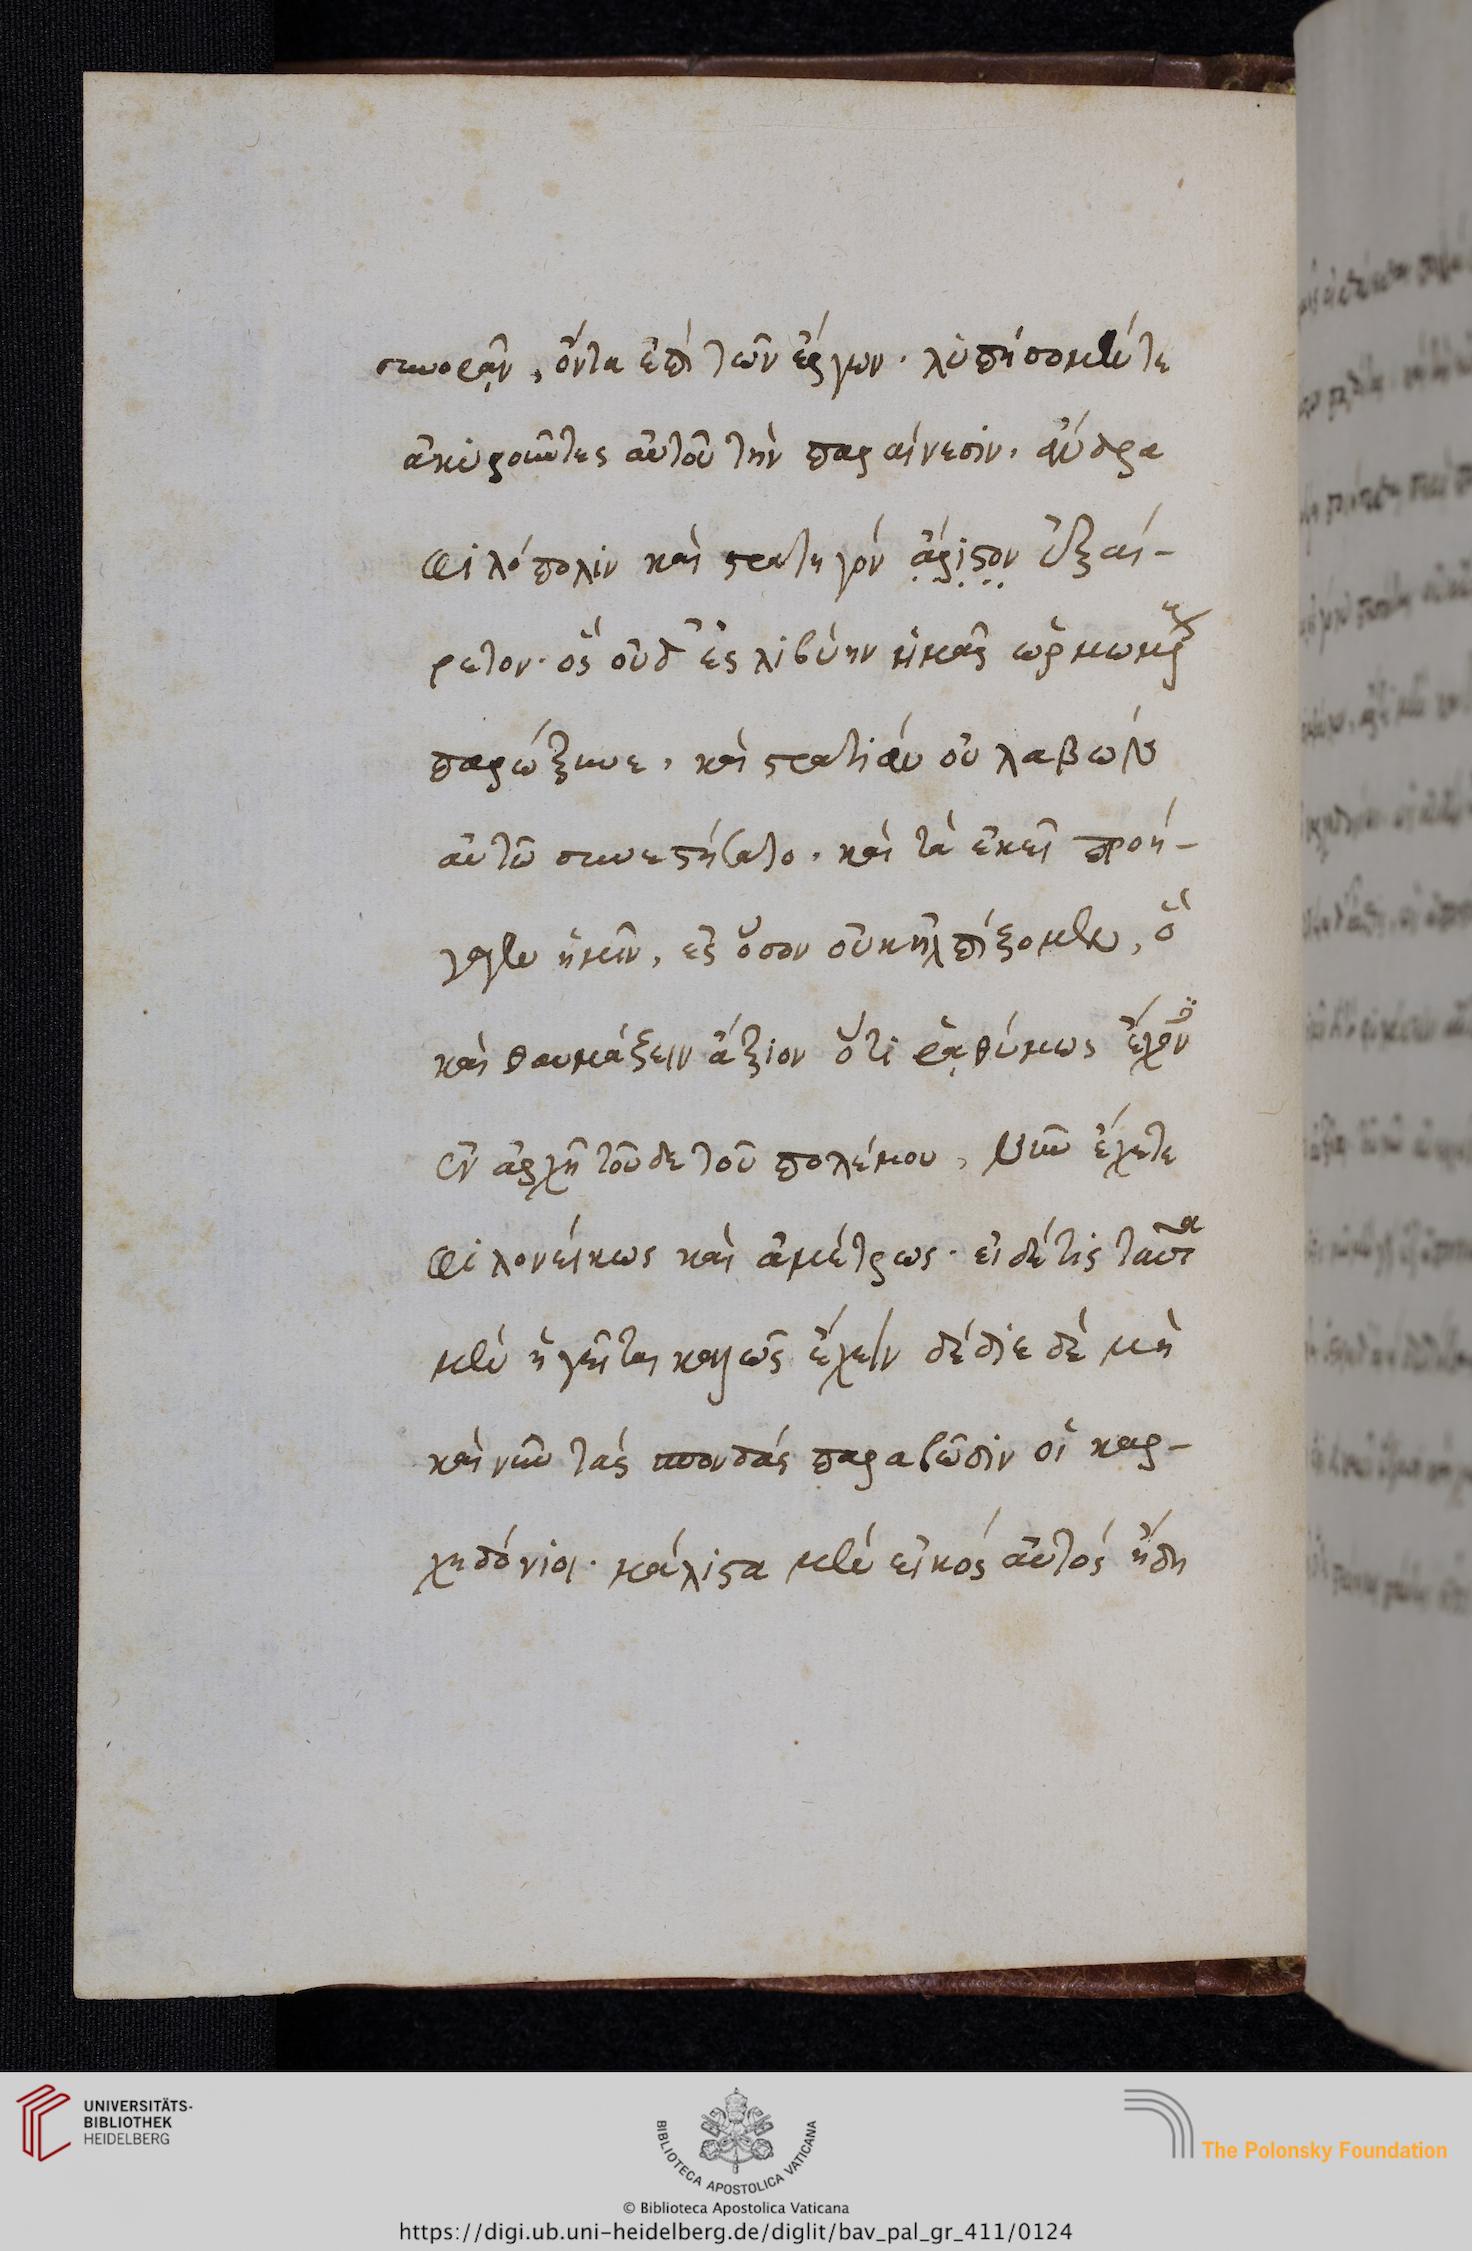 συνορᾶν, ὄντα ἐπὶ τῶν ἔργων· λυπήσομέν τε
ἀκυροῦντες αὐτοῦ τὴν παραίνεσιν, ἄνδρα
φιλόπολιν καὶ στρατηγὸν ἄριστον ἐξαί-
ρετον· ὃς οὐδ' ἐς λιβύην ἡμᾶς ὁρμωμένους
παρώξυνε, καὶ στρατιὰν οὐ λαβὼν
αὐτῶ συνεστήσατο, καὶ τὰ ἐκεῖ προή-
γαγεν ἡμῖν, ἐς ὅσον οὐκ ἠλπίζομεν, ὃ
καὶ θαυμάζειν ἄξιον ὅτι ῥᾳθύμως ἔχοντες
ἐν ἀρχῆ τοῦδε τοῦ πολέμου, νῦν ἔχετε
φιλονείκως καὶ ἀμέτρως· εἰ δέ τις ταῦτα
μὲν ἡγεῖται καλῶς ἔχειν δέδιε δὲ μὴ
καὶ νῦν τὰς σπονδὰς παραβῶσιν οἱ καρ-
χηδόνιοι· μάλιστα μὲν εἰκὸς αὐτοὺς ἤδη
UNIVERSITÄTS-
BIBLIOTHEK
HEIDELBERG
BIBLIOTECA APOSTOLICA VATICANA
The Polonsky Foundation
© Biblioteca Apostolica Vaticana
https://digi.ub.uni-heidelberg.de/diglit/bav_pal_gr_411/0124